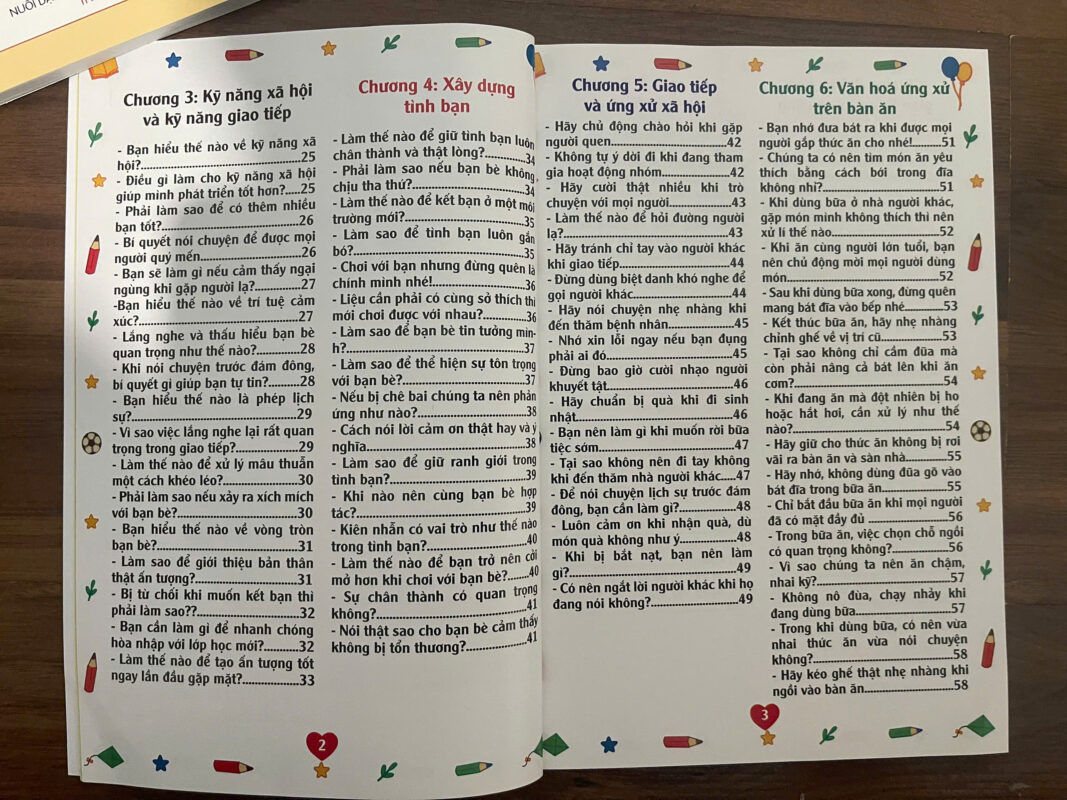 NUÔI DẠ
Chương 3: Kỹ năng xã hội
và kỹ năng giao tiếp
- Bạn hiểu thế nào về kỹ năng xã
hội?..................................................25
- Điều gì làm cho kỹ năng xã hội
giúp mình phát triển tốt hơn?.....25
- Phải làm sao để có thêm nhiều
bạn tốt?...........................................26
- Bí quyết nói chuyện để được mọi
người quý mến...............................26
- Bạn sẽ làm gì nếu cảm thấy ngại
ngùng khi gặp người lạ?...............27
-Bạn hiểu thế nào về trí tuệ cảm
xúc?..................................................27
- Lắng nghe và thấu hiểu bạn bè
quan trọng như thế nào?.............28
- Khi nói chuyện trước đám đông,
bí quyết gì giúp bạn tự tin?..........28
- Bạn hiểu thế nào là phép lịch
sự?....................................................29
- Vì sao việc lắng nghe lại rất quan
trọng trong giao tiếp?...................29
- Làm thế nào để xử lý mâu thuẫn
một cách khéo léo?.......................30
- Phải làm sao nếu xảy ra xích mích
với bạn bè?.....................................30
- Bạn hiểu thế nào về vòng tròn
bạn bè?...........................................31
- Làm sao để giới thiệu bản thân
thật ấn tượng?................................31
- Bị từ chối khi muốn kết bạn thì
phải làm sao??................................32
- Bạn cần làm gì để nhanh chóng
hòa nhập với lớp học mới?...........32
- Làm thế nào để tạo ấn tượng tốt
ngay lần đầu gặp mặt?..................33
2
Chương 4: Xây dựng
tình bạn
- Làm thế nào để giữ tình bạn luôn
chân thành và thật lòng?...............34
- Phải làm sao nếu bạn bè không
chịu tha thứ?...................................34
- Làm thế nào để kết bạn ở một môi
trường mới?....................................35
- Làm sao để tình bạn luôn gắn
bó?...................................................35
- Chơi với bạn nhưng đừng quên là
chính mình nhé!.............................36
- Liệu cần phải có cùng sở thích thì
mới chơi được với nhau?..............36
- Làm sao để bạn bè tin tưởng mìn-
h?......................................................37
- Làm sao để thể hiện sự tôn trọng
với bạn bè?.....................................37
- Nếu bị chê bai chúng ta nên phản
ứng như nào?.................................38
- Cách nói lời cảm ơn thật hay và ý
nghĩa................................................38
- Làm sao để giữ ranh giới trong
tình bạn?.........................................39
- Khi nào nên cùng bạn bè hợp
tác?..................................................39
- Kiên nhẫn có vai trò như thế nào
trong tình bạn?..............................40
- Làm thế nào để bạn trở nên cởi
mở hơn khi chơi với bạn bè?.......40
- Sự chân thành có quan trọng
không?............................................41
- Nói thật sao cho bạn bè cảm thấy
không bị tổn thương?....................41
Chương 5: Giao tiếp
và ứng xử xã hội
- Hãy chủ động chào hỏi khi gặp
người quen.....................................42
- Không tự ý dời đi khi đang tham
gia hoạt động nhóm......................42
- Hãy cười thật nhiều khi trò
chuyện với mọi người...................43
- Làm thế nào để hỏi đường người
lạ?.....................................................43
- Hãy tránh chỉ tay vào người khác
khi giao tiếp....................................44
- Đừng dùng biệt danh khó nghe để
gọi người khác................................44
- Hãy nói chuyện nhẹ nhàng khi
đến thăm bệnh nhân.....................45
- Nhớ xin lỗi ngay nếu bạn đụng
phải ai đó........................................45
- Đừng bao giờ cười nhạo người
khuyết tật........................................46
- Hãy chuẩn bị quà khi đi sinh
nhật..................................................46
- Bạn nên làm gì khi muốn rời bữa
tiệc sớm...........................................47
- Tại sao không nên đi tay không
khi đến thăm nhà người khác.....47
- Để nói chuyện lịch sự trước đám
đông, bạn cần làm gì?...................48
- Luôn cảm ơn khi nhận quà, dù
món quà không như ý...................48
- Khi bị bắt nạt, bạn nên làm
gì?....................................................49
- Có nên ngắt lời người khác khi họ
đang nói không?.............................49
Chương 6: Văn hoá ứng xử
trên bàn ăn
- Bạn nhớ đưa bát ra khi được mọi
người gắp thức ăn cho nhé!..........51
- Chúng ta có nên tìm món ăn yêu
thích bằng cách bới trong đĩa
không nhỉ?......................................51
- Khi dùng bữa ở nhà người khác,
gặp món mình không thích thì nên
xử lí thế nào....................................52
- Khi ăn cùng người lớn tuổi, bạn
nên chủ động mời mọi người dùng
món..................................................52
- Sau khi dùng bữa xong, đừng quên
mang bát đĩa vào bếp nhé............53
- Kết thúc bữa ăn, hãy nhẹ nhàng
chỉnh ghế về vị trí cũ.....................53
- Tại sao không chỉ cầm đũa mà
còn phải nâng cả bát lên khi ăn
cơm?................................................54
- Khi đang ăn mà đột nhiên bị ho
hoặc hắt hơi, cần xử lý như thế
nào?.................................................54
- Hãy giữ cho thức ăn không bị rơi
vãi ra bàn ăn và sàn nhà...............55
- Hãy nhớ, không dùng đũa gõ vào
bát đĩa trong bữa ăn......................55
- Chỉ bắt đầu bữa ăn khi mọi người
đã có mặt đầy đủ ..........................56
- Trong bữa ăn, việc chọn chỗ ngồi
có quan trọng không?...................56
- Vì sao chúng ta nên ăn chậm,
nhai kỹ?...........................................57
- Không nô đùa, chạy nhảy khi
đang dùng bữa...............................57
- Trong khi dùng bữa, có nên vừa
nhai thức ăn vừa nói chuyện
không?.............................................58
- Hãy kéo ghế thật nhẹ nhàng khi
ngồi vào bàn ăn..............................58
3